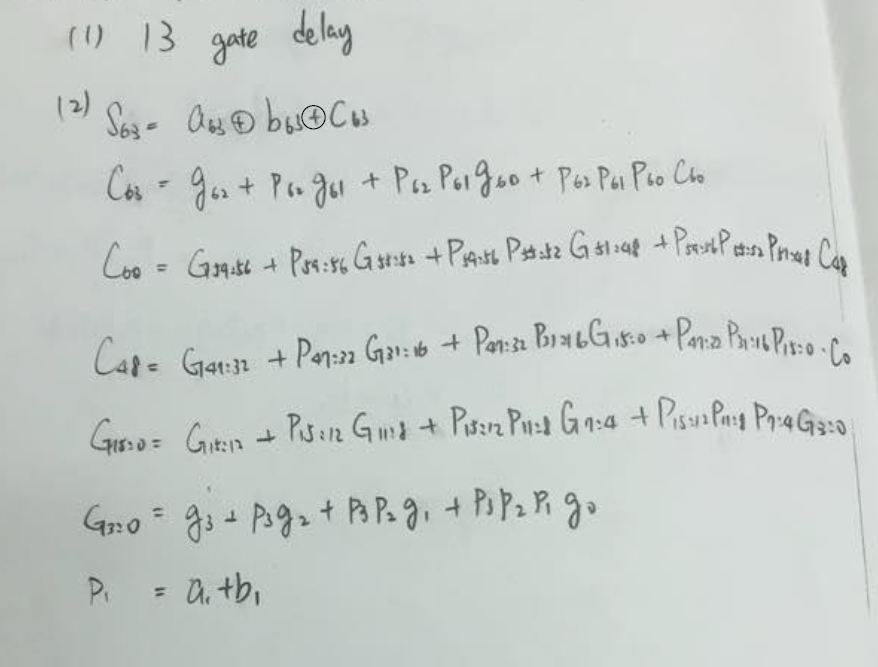 (1) 13 gate delay
(2) S63 = a63 ⊕ b63 ⊕ C63
C63 = g62 + P62 g61 + P62 P61 g60 + P62 P61 P60 C60
C60 = G59:56 + P59:56 G55:52 + P59:56 P55:52 G51:48 + P59:56 P55:52 P51:48 C48
C48 = G47:32 + P47:32 G31:16 + P47:32 P31:16 G15:0 + P47:32 P31:16 P15:0 · C0
G15:0 = G15:12 + P15:12 G11:8 + P15:12 P11:8 G7:4 + P15:12 P11:8 P7:4 G3:0
G3:0 = g3 + P3 g2 + P3 P2 g1 + P3 P2 P1 g0
P1 = a1 + b1